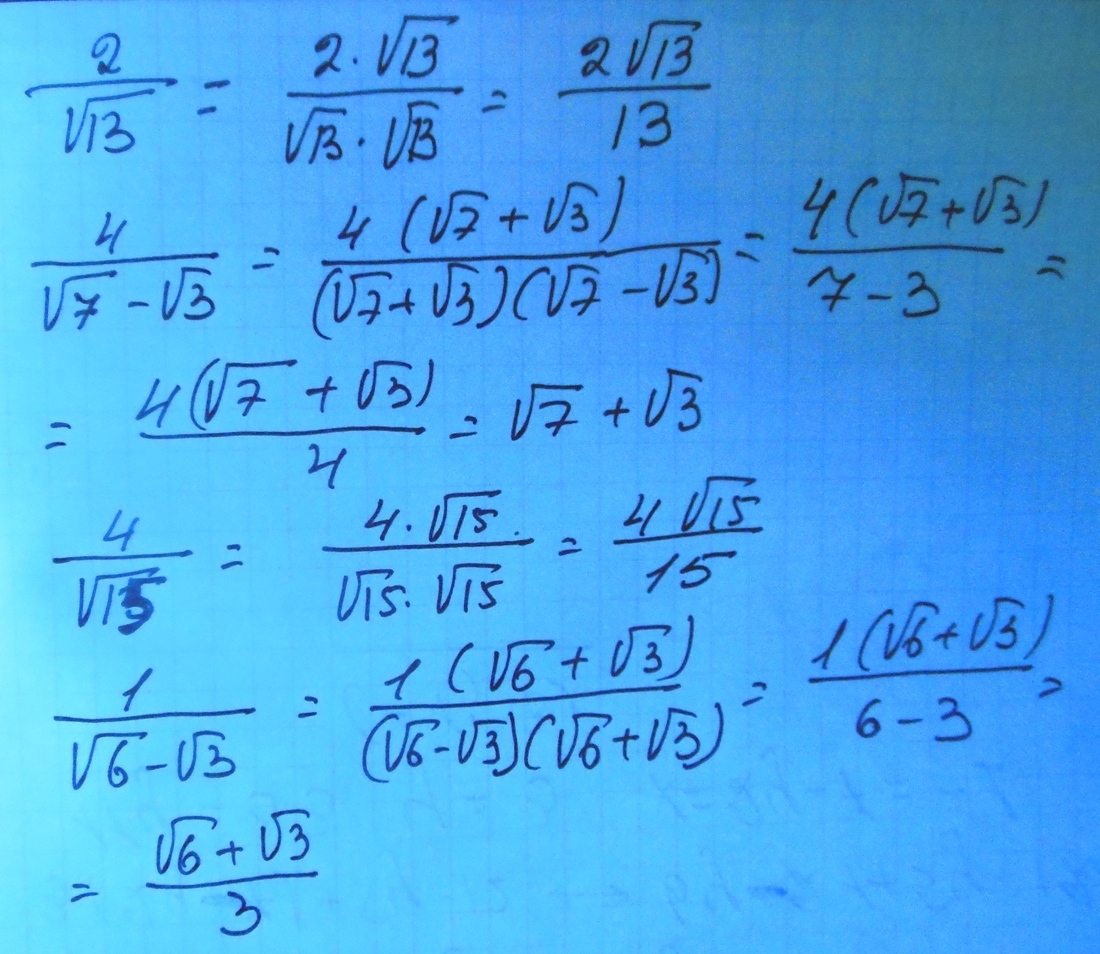 2/√13 = 2·√13/(√13·√13) = 2√13/13
4/(√7-√3) = 4(√7+√3)/((√7+√3)(√7-√3)) = 4(√7+√3)/(7-3) =
= 4(√7+√3)/4 = √7+√3
4/√15 = 4·√15/(√15·√15) = 4√15/15
1/(√6-√3) = 1(√6+√3)/((√6-√3)(√6+√3)) = 1(√6+√3)/(6-3) =
= (√6+√3)/3